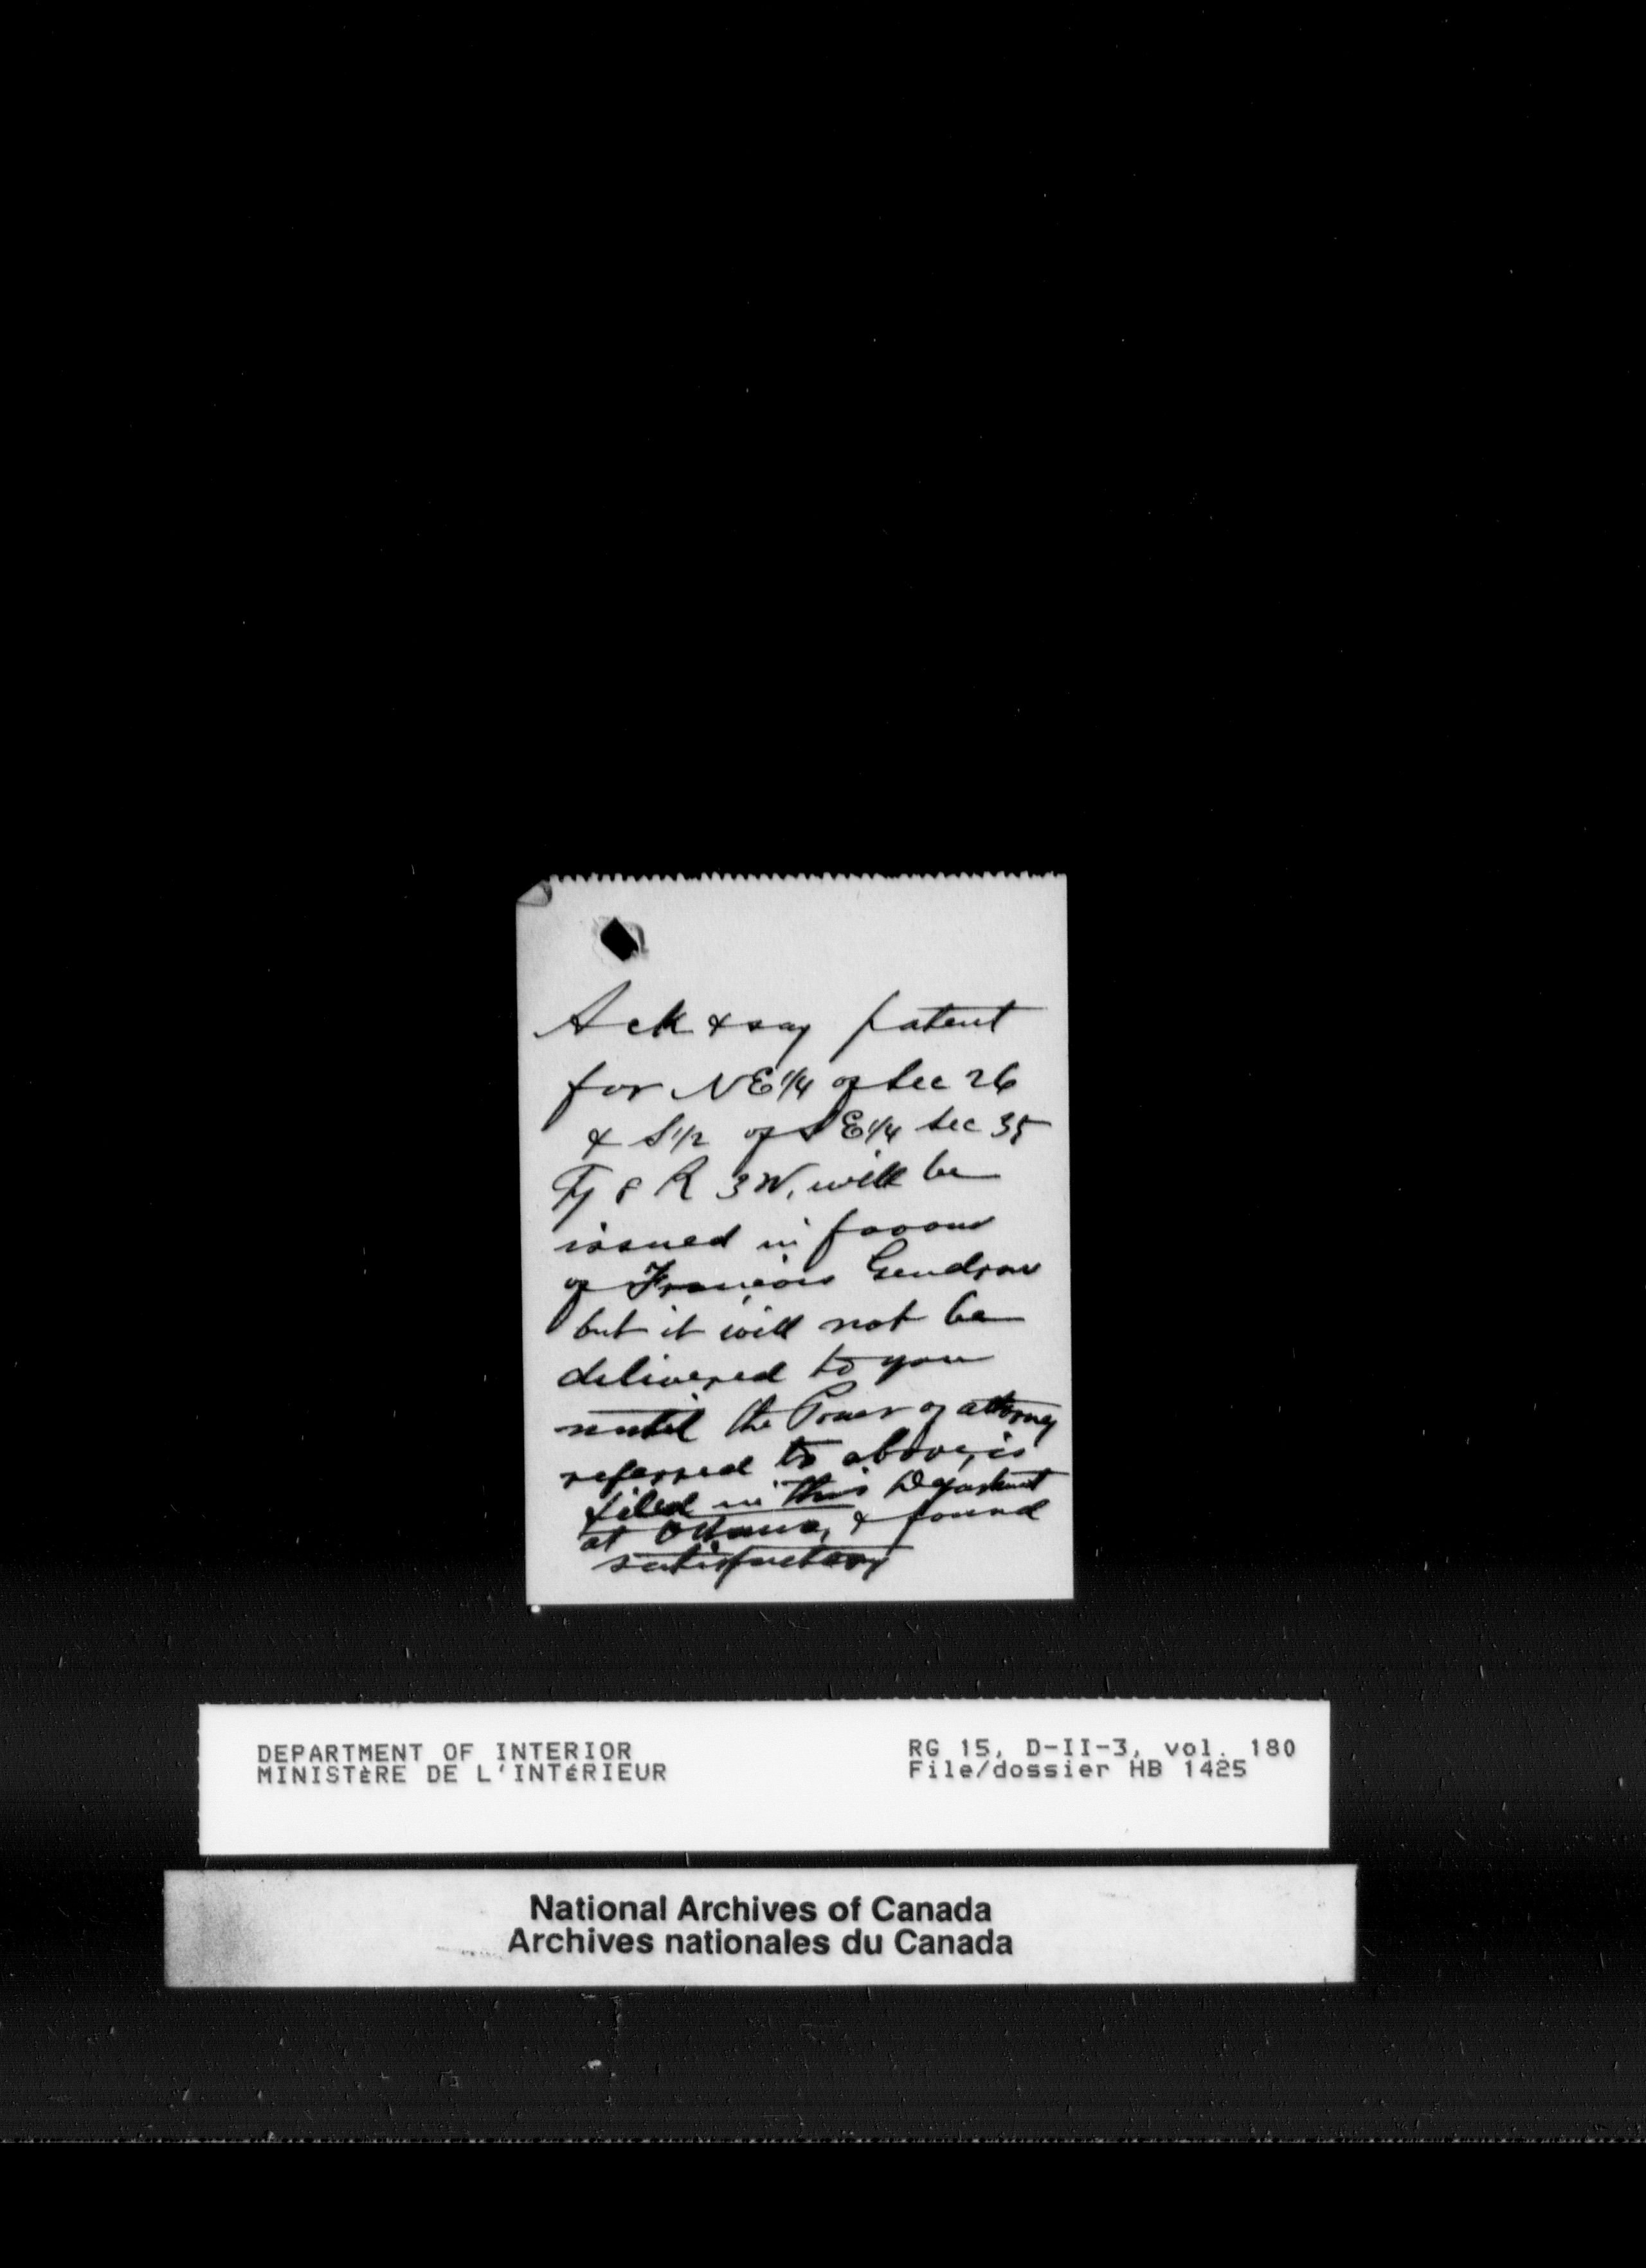 Ack & say patent
for NE 1/4 of Sec 26
& S 1/2 of S E 1/4 Sec 35
Tp 8 R 3 W, will be
issued in favour
of François Gendron
but it will not be
delivered to you
until the Power of attorney
referred to above, is
filed in this Department
at Ottawa, & found
satisfactory
DEPARTMENT OF INTERIOR
MINISTÈRE DE L'INTÉRIEUR
RG 15, D-II-3, vol. 180
File/dossier HB 1425
National Archives of Canada
Archives nationales du Canada